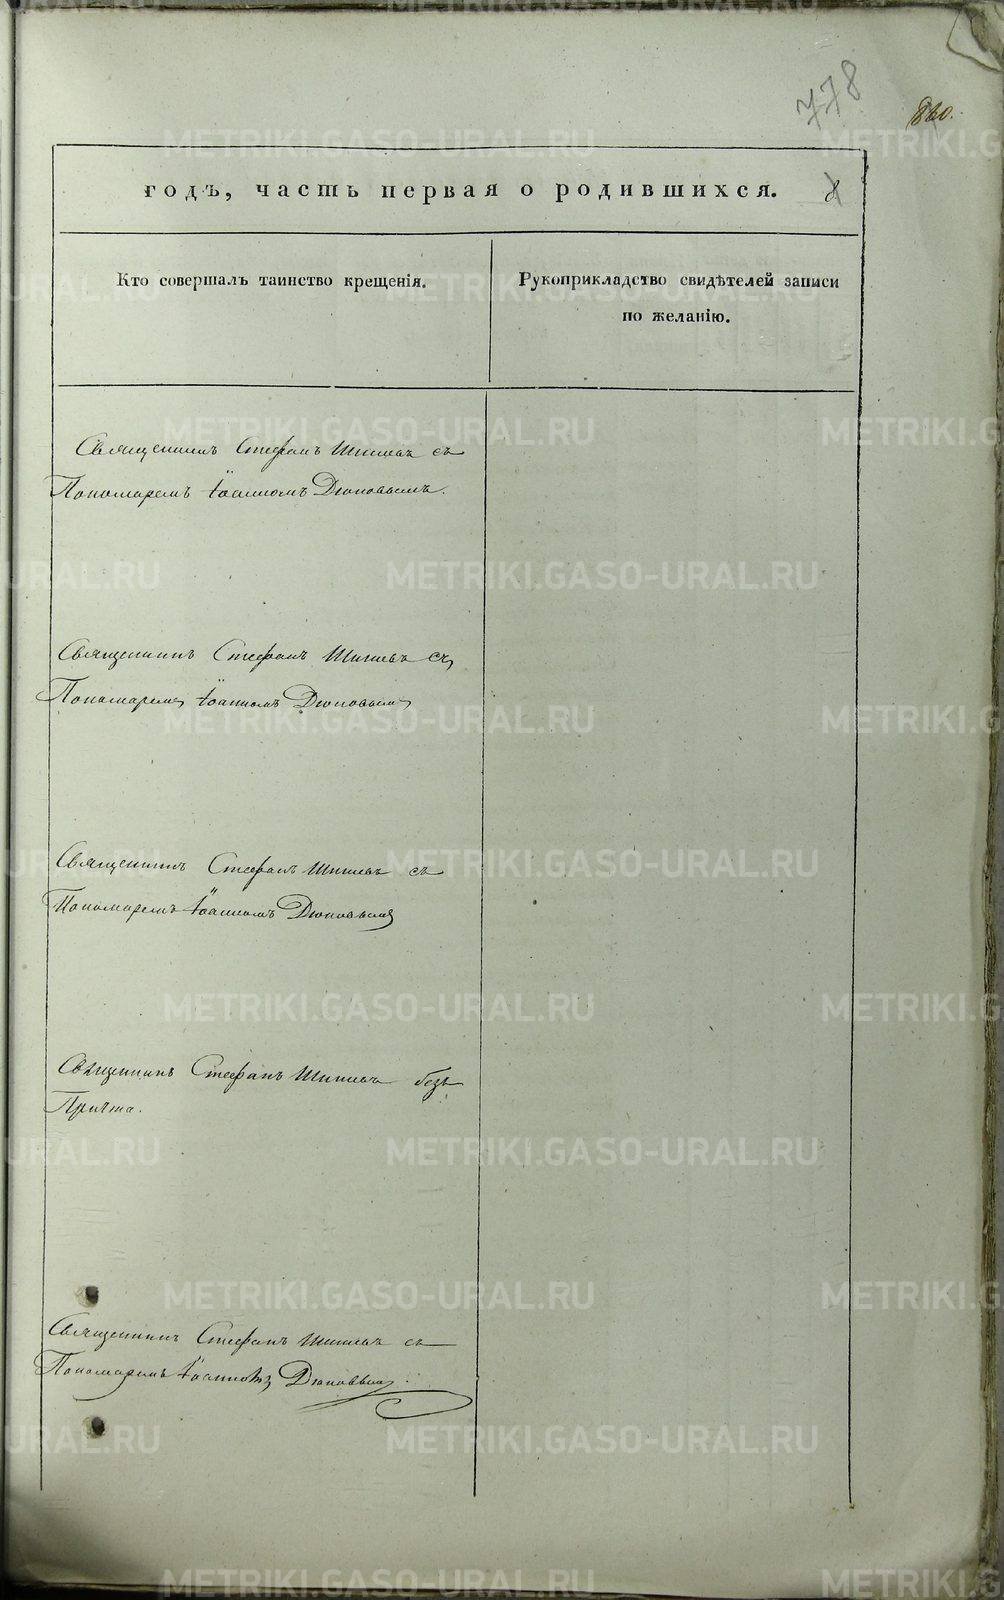 778
860.
годъ, часть первая о родившихся. 8
Кто совершалъ таинство крещенія.
Рукоприкладство свидѣтелей записи
по желанію.
Священникъ Стефанъ Шишевъ съ
Пономаремъ Іоанномъ Дюповымъ.
Священникъ Стефанъ Шишевъ съ
Пономаремъ Іоанномъ Дюповымъ
Священникъ Стефанъ Шишевъ съ
Пономаремъ Іоанномъ Дюповымъ
Священникъ Стефанъ Шишевъ безъ
Причта.
Священникъ Стефанъ Шишевъ съ
Пономаремъ Іоанномъ Дюповымъ.
METRIKI.GASO-URAL.RU